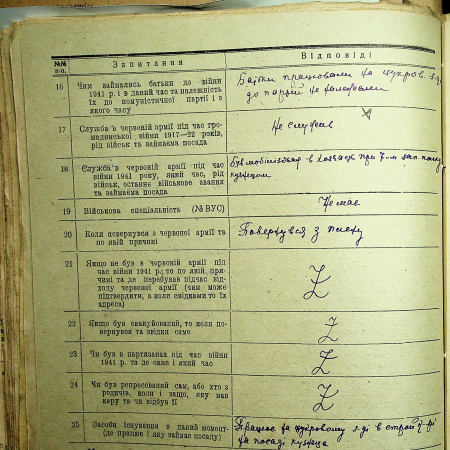 №№ п.п.
Запитання
Відповіді
16
Чим займались батьки до війни
1941 р. і в даний час та належність
їх до комуністичної партії і в
якого часу
Батьки працювали на цукров. з-ді
до партії не належали
17
Служба в червоній армії під час гро-
мадянської війни 1917—22 років,
рід військ та займаєма посада
Не служив
18
Служба в червоній армії під час
війни 1941 року, який час, рід
військ, останнє військове звання
та займаєма посада
Був мобілізован в при 7-м зап. полку
19
Військова спеціальність (№ ВУС)
Немає
20
Коли повернувся з червоної армії та
по якій причині
Повернувся з
21
Якщо не був в червоній армії під
час війни 1941 р., то по якій, при-
чині та де перебував підчас від-
ходу червоної армії (чим може
підтвердити, а коли свідками то їх
адреса)
Z
22
Якщо був евакуйований, то коли по-
вернувся та звідки саме
Z
23
Чи був в партизанах під час війни
1941 р. та де саме і який час
Z
24
Чи був репресований сам, або хто з
родичів, коли і защо, яку мав
кару та чи відбув її
Z
25
Засоби існування в даний момент
(де працює і яку займає посаду)
Працює на цукровому з-ді в
на посаді коваля